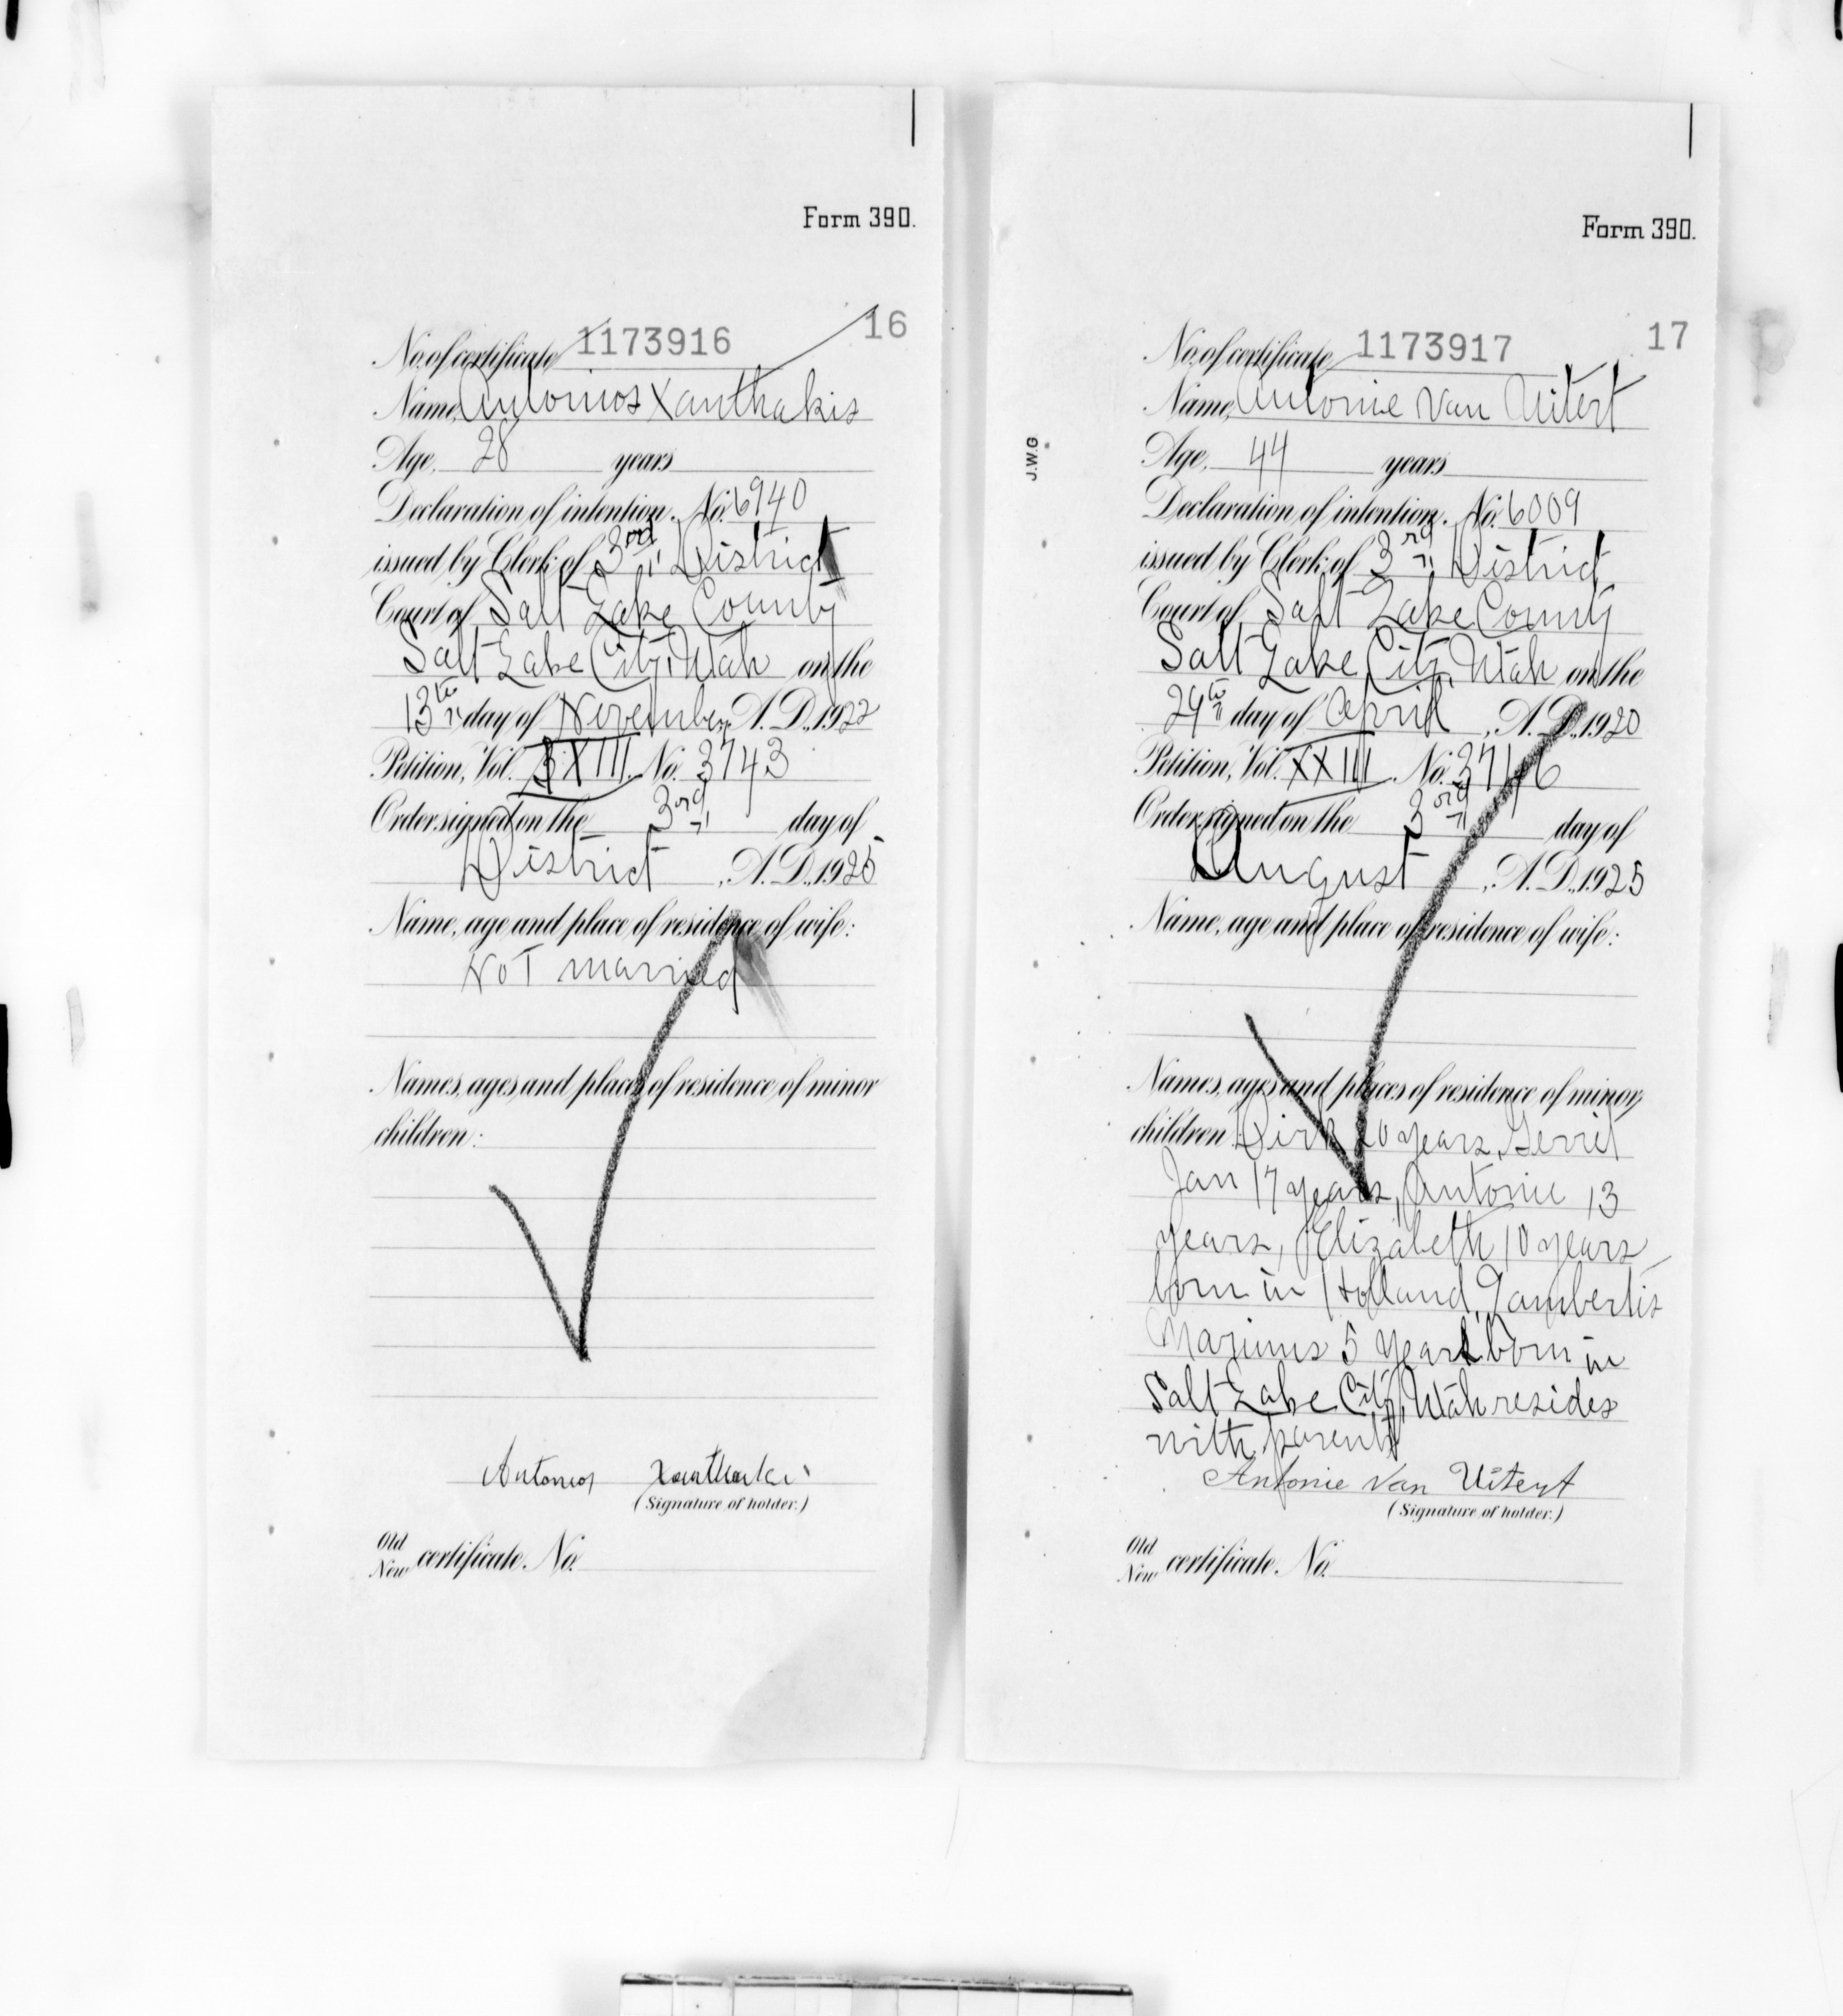 Form 390.
16
No. of certificate 1173916
Name, Antonios Xanthakis
Age, 28 years
Declaration of intention, No. 6940
issued by Clerk of 3rd District
Court of Salt Lake County
Salt Lake City, Utah on the
13th day of November, A. D., 1922
Petition, Vol. XXIII. No. 3743
Order signed on the 3rd day of
District, A. D., 1925
Name, age and place of residence of wife:
Not married
Names, ages and places of residence of minor
children:
Antonios Xanthakis
(Signature of holder.)
Old
New certificate, No.
Form 390.
17
J.W.G
No. of certificate, 1173917
Name, Antonie Van Uitert
Age, 44 years
Declaration of intention, No. 6009
issued by Clerk of 3rd District
Court of Salt Lake County
Salt Lake City, Utah on the
29th day of April, A. D., 1920
Petition, Vol. XXIII. No.
Order signed on the 3rd day of
August, A. D., 1925
Name, age and place of residence of wife:
Names, ages and places of residence of minor
children: Dirk 20 years, Gerrit
Jan 17 years, Antonie 13
years, Elizabeth 10 years
born in Holland, Lambertis
Marinus 5 years born in
Salt Lake City, Utah resides
with parents
Antonie Van Uitert
(Signature of holder.)
Old
New certificate, No.